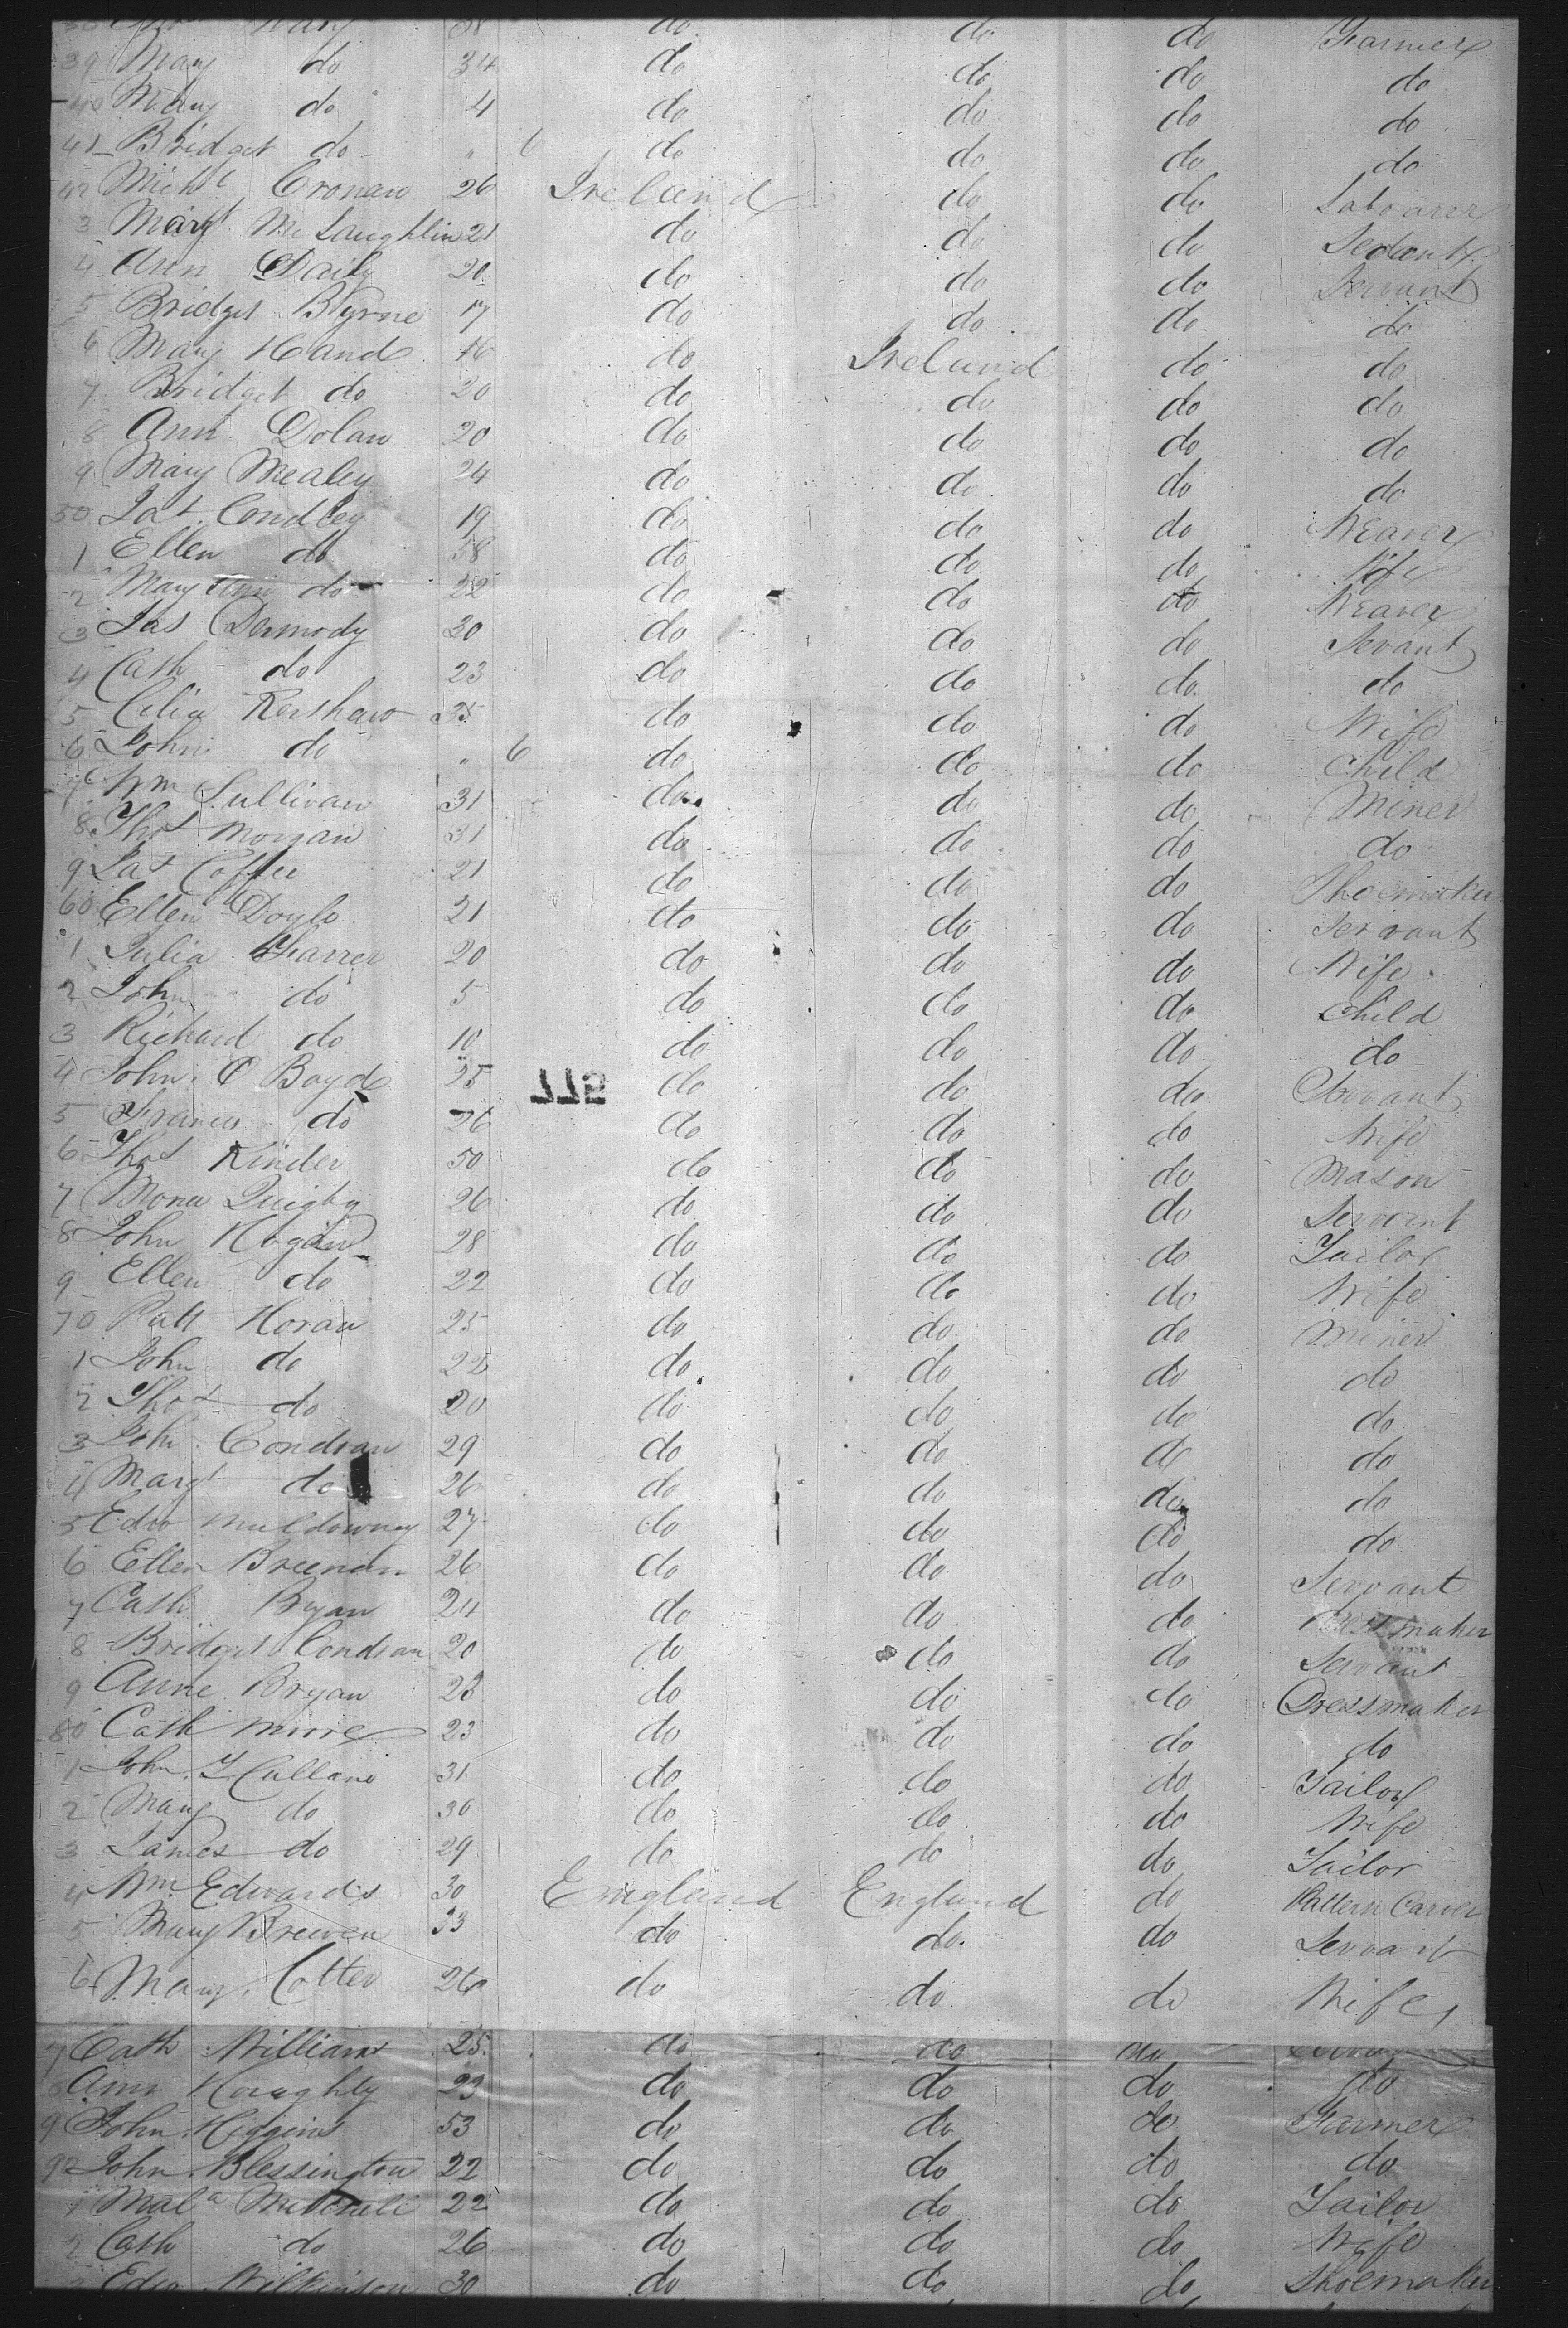 38 Mary 38 do do do Farmer
39 Mary do 34 do do do do
40 Mary do 4 do do do do
41 Bridget do " 6 do do do do
42 Michl Cronan 26 Ireland do do Labourer
3 Margt McLaughlin 21 do do do Servant
4 Ann Daily 20 do do do Servant
5 Bridget Byrne 17 do do do do
6 Mary Hand 16 do Ireland do do
7 Bridget do 20 do do do do
8 Ann Dolan 20 do do do do
9 Mary Mealey 24 do do do do
50 Pat Condley 19 do do do Weaver
1 Ellen do 58 do do do Wife
2 Mary Ann do 22 do do do Weaver
3 Jas Dermody 30 do do do Servant
4 Cath do 23 do do do do
5 Celia Kershaw 25 do do do Wife
6 John do " 6 do do do Child
7 Wm Sullivan 31 do do do Miner
8 Thos Morgan 31 do do do do
9 Pat Coffee 21 do do do Shoemaker
60 Ellen Doyle 21 do do do Servant
1 Julia Farrer 20 do do do Wife
2 John do 5 do do do Child
3 Richard do 10 do do do do
4 John O Boyd 25 do do do Servant
577
5 Frances do 26 do do do Wife
6 Thos Kinder 50 do do do Mason
7 Mona Quigby 26 do do do Servant
8 John Hogan 28 do do do Tailor
9 Ellen do 22 do do do Wife
70 Patt Horan 25 do do do Miner
1 John do 22 do do do do
2 Thos do 20 do do do do
3 John Condran 29 do do do do
4 Margt do 26 do do do do
5 Edw Muldowney 27 do do do do
6 Ellen Breenan 26 do do do Servant
7 Cath Bryan 24 do do do Dressmaker
8 Bridget Condran 20 do do do Servant
9 Anne Bryan 23 do do do Dressmaker
80 Cath Moore 23 do do do do
1 John Cullane 31 do do do Tailor
2 Mary do 30 do do do Wife
3 James do 29 do do do Tailor
4 Wm Edwards 30 England England do Pattern Carver
5 Mary Brewen 33 do do do Servant
6 Mary Cotter 26 do do do Wife
7 Cath William 25 do do do
8 Ann Horaghty 23 do do do do
9 John Higgins 53 do do do Farmer
90 John Blessington 22 do do do do
1 Mala Mitchell 22 do do do Tailor
2 Cath do 26 do do do Wife
3 Edw Wilkinson 30 do do do Shoemaker